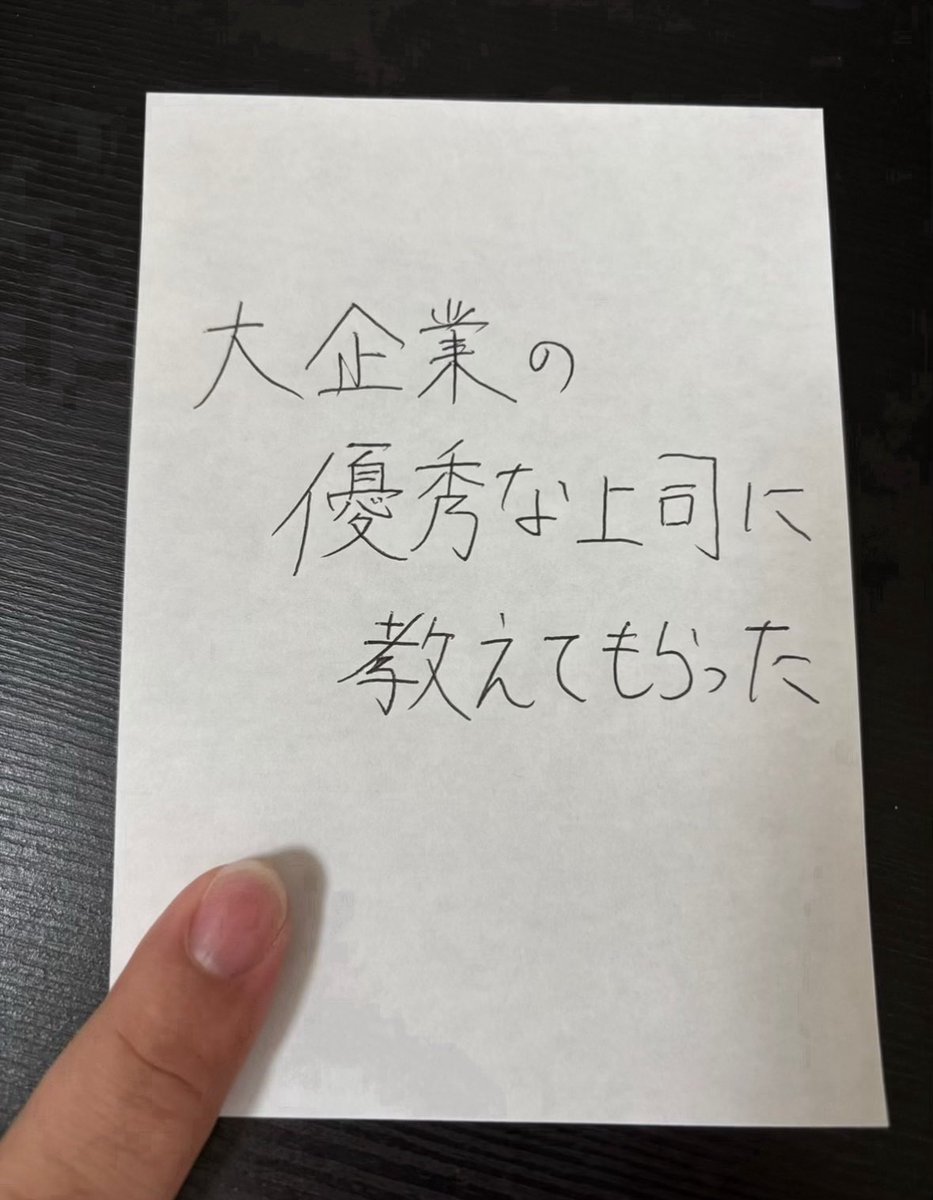 大企業の
優秀な上司に
教えてもらった